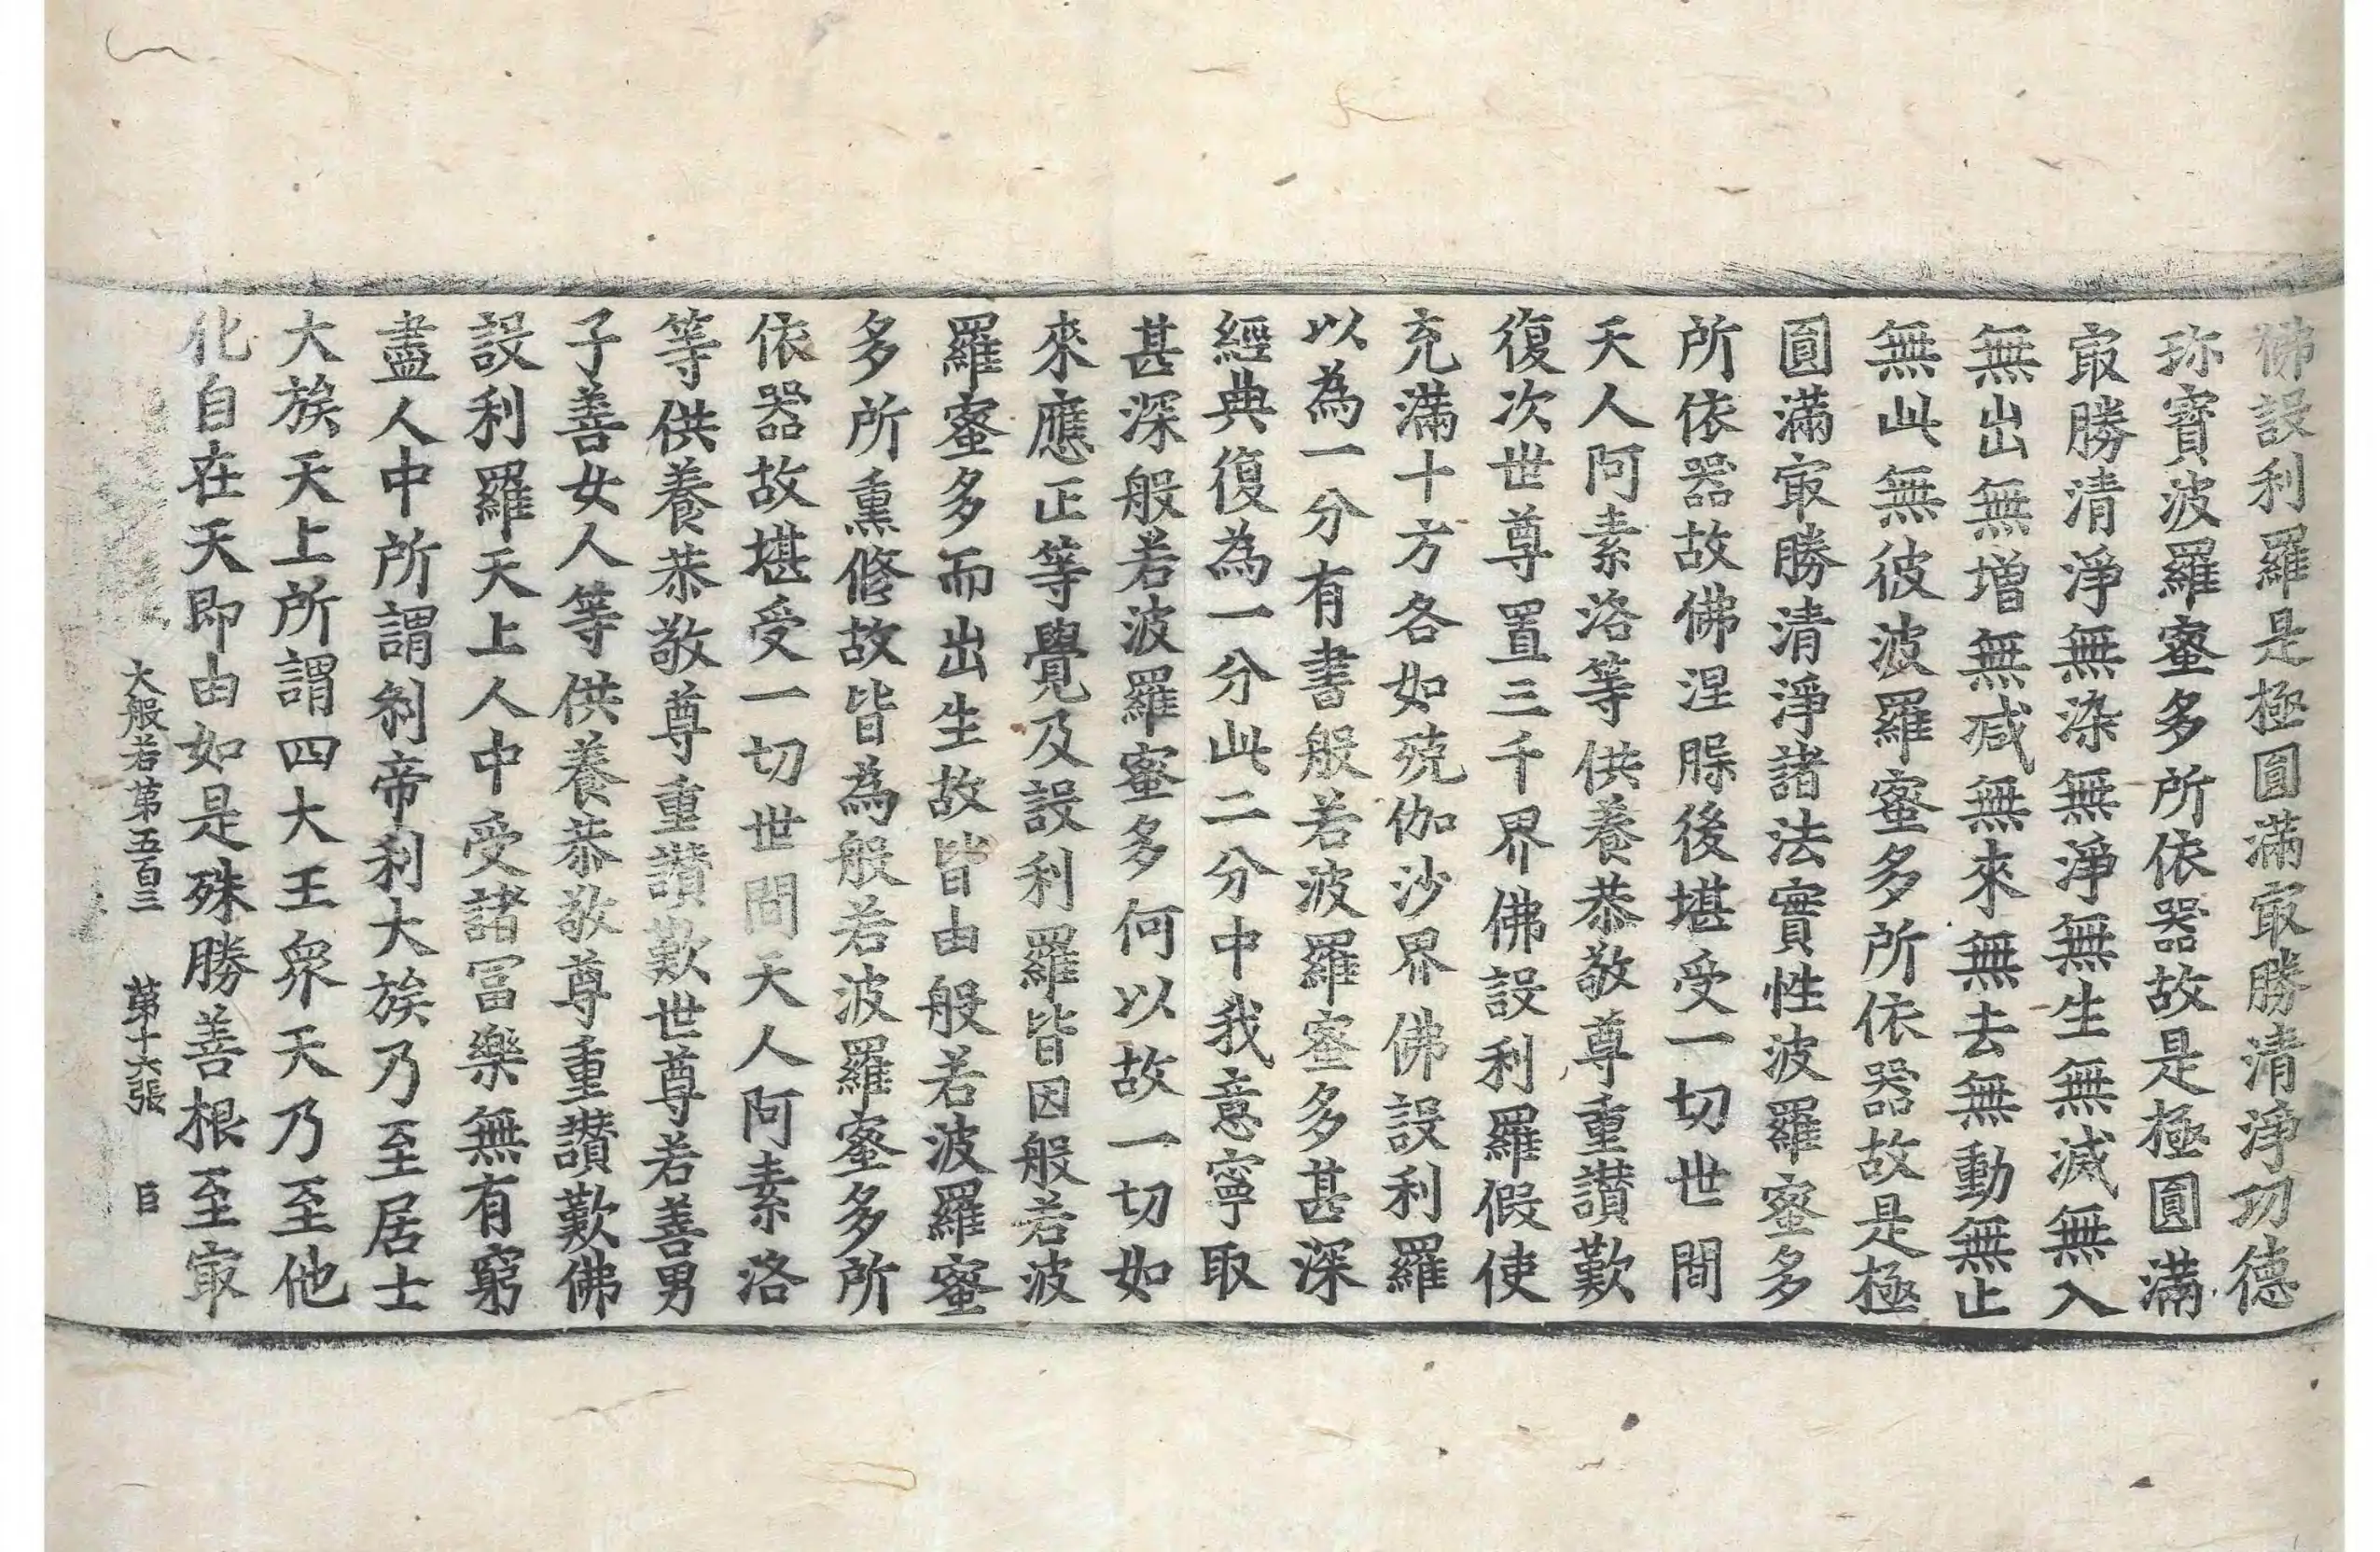 佛設利羅是極圓滿㝡勝清淨功德
珎寶波羅蜜多所依器故是極圓滿
㝡勝清淨無染無淨無生無滅無入
無出無增無減無來無去無動無止
無此無彼波羅蜜多所依器故是極
圓滿㝡勝清淨諸法實性波羅蜜多
所依器故佛涅槃後堪受一切世間
天人阿素洛等供養恭敬尊重讃歎
復次世尊置三千界佛設利羅假使
充滿十方各如殑伽沙界佛設利羅
以為一分有書般若波羅蜜多甚深
經典復為一分此二分中我意寧取
甚深般若波羅蜜多何以故一切如
來應正等覺及設利羅皆因般若波
羅蜜多而出生故皆由般若波羅蜜
多所熏修故皆為般若波羅蜜多所
依器故堪受一切世間天人阿素洛
等供養恭敬尊重讃歎世尊若善男
子善女人等供養恭敬尊重讃歎佛
設利羅天上人中受諸冨樂無有窮
盡人中所謂刹帝利大族乃至居士
大族天上所謂四大王衆天乃至他
化自在天即由如是殊勝善根至㝡
大般若第五百三 第十六張 臣